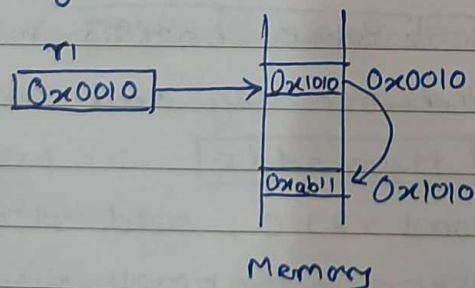 r1
0x0010 0x1010 0x0010
0xab11 0x1010
Memory